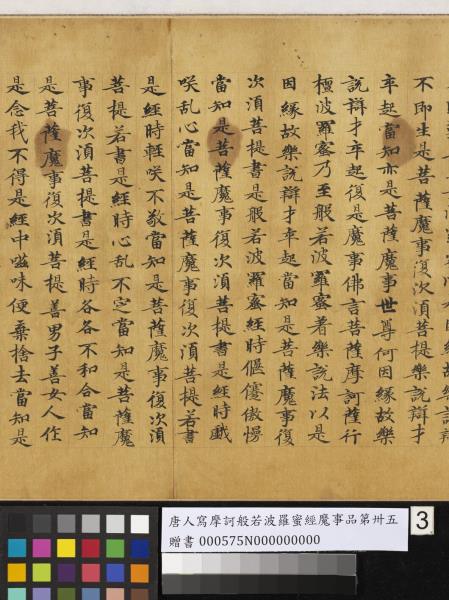 不即生是菩薩魔事復次須菩提樂說辯才
卒起當知亦是菩薩魔事世尊何因緣故樂
說辯才卒起復是魔事佛言菩薩摩訶薩行
檀波羅蜜乃至般若波羅蜜著樂說法以是
因緣故樂說辯才卒起當知是菩薩魔事復
次須菩提書是般若波羅蜜經時偃優傲慢
當知是菩薩魔事復次須菩提書是經時戲
咲乱心當知是菩薩魔事復次須菩提若書
是經時輕咲不敬當知是菩薩魔事復次須
菩提若書是經時心乱不定當知是菩薩魔
事復次須菩提書是經時各各不和合當知
是菩薩魔事復次須菩提善男子善女人作
是念我不得是經中滋味便棄捨去當知是
唐人寫摩訶般若波羅蜜經魔事品第卅五
贈書 000575N000000000
3